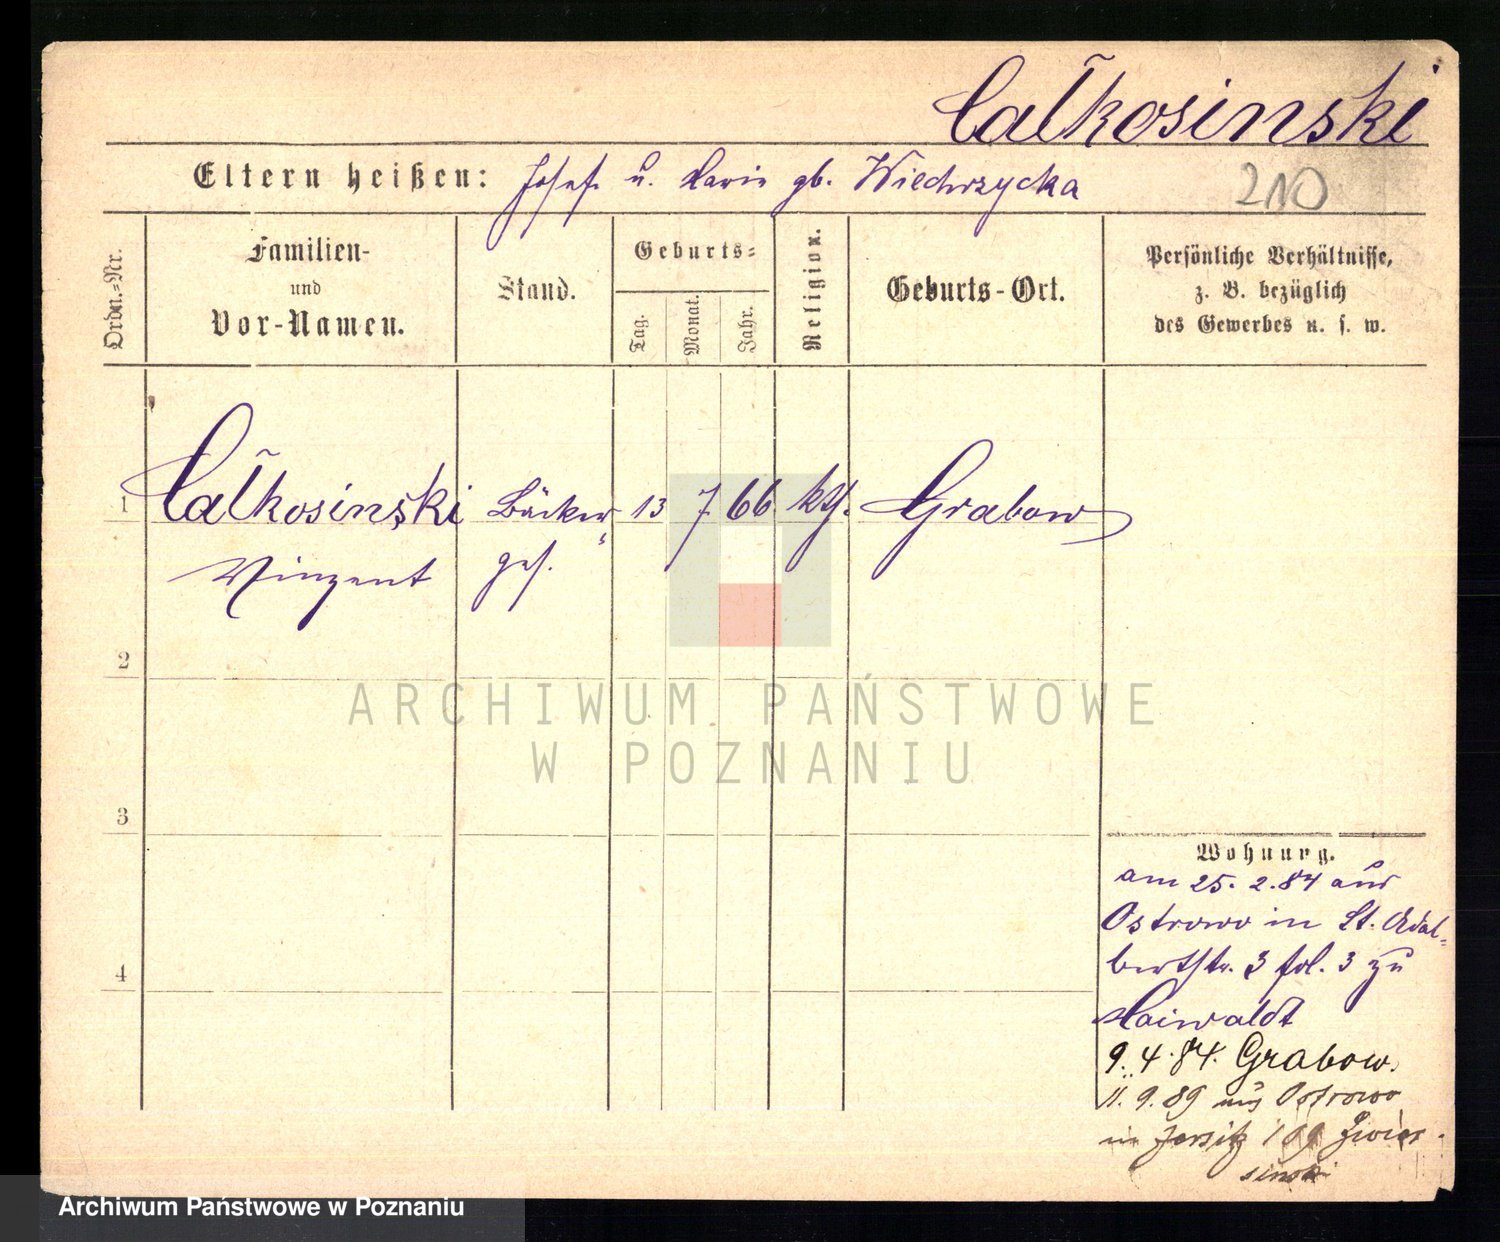 Całkosinski
Eltern heißen: Josef u. Marie gb. Wiechrzycka
210
Ordn.-Nr.
Familien-
und
Vor-Namen.
Stand.
Geburts-
Tag.
Monat.
Jahr.
Religion.
Geburts-Ort.
Persönliche Verhältnisse,
z. B. bezüglich
des Gewerbes u. s. w.
1 Całkosinski Bäcker 13 7 66 kth. Grabow
Vinzent ges.
2
3
4
Wohnung.
am 25. 2. 84 aus
Ostrowo in St. Adal-
bertstr. 3 fol. 3 zu
Haiwaldt
9. 4. 84. Grabow.
11. 9. 89 aus Ostrowo
in Jersitz 109
sinski
ARCHIWUM PAŃSTWOWE
W POZNANIU
Archiwum Państwowe w Poznaniu